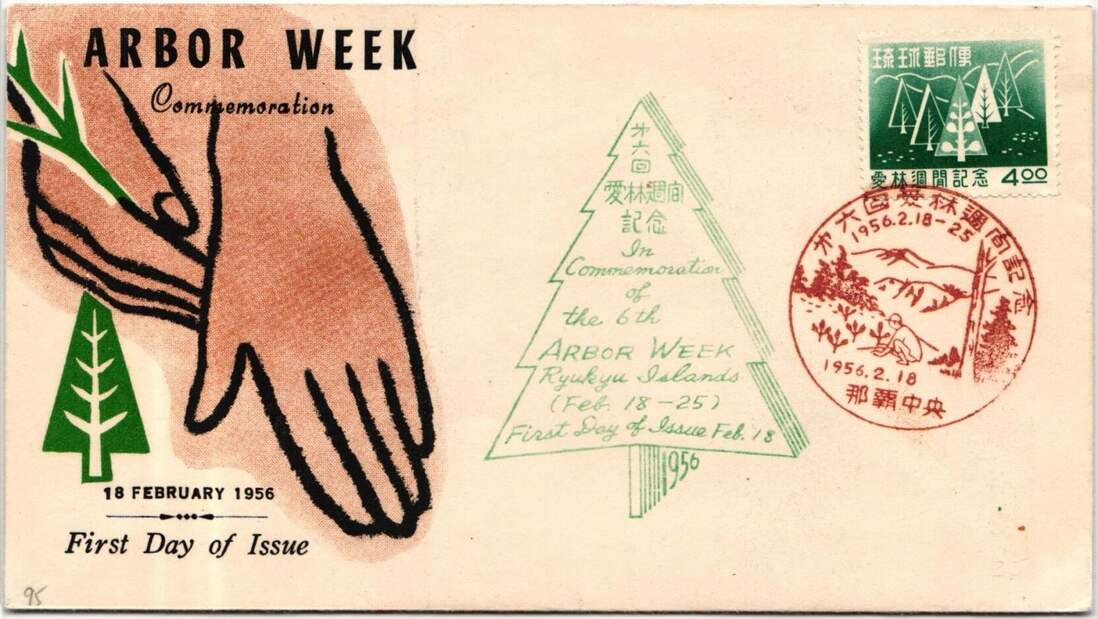 ARBOR WEEK
Commemoration
18 FEBRUARY 1956
First Day of Issue
95
才六回
愛林週间
記念
In
Commemoration
of
the 6th
ARBOR WEEK
Ryukyu Islands
(Feb. 18-25)
First Day of Issue Feb. 18
1956
琉球郵便
愛林週間記念 4.00
才六回愛林週间記念
1956.2.18-25
1956.2.18
那覇中央